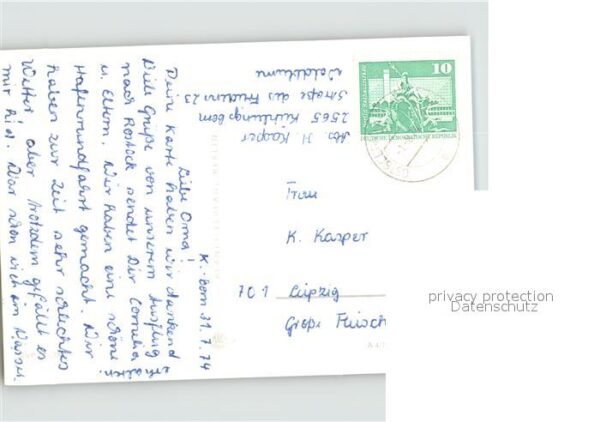 K.born 31.7.74
Liebe Oma!
Deine Karte haben wir dankend erhalten.
Viele Grüße von unserem Ausflug
nach Rostock sendet Dir Cornelia
u. Eltern. Wir haben eine schöne
Hafenrundfahrt gemacht. Wir
haben zur Zeit sehr schlechtes
Wetter aber trotzdem gefällt es
mir hier. War schon viel am Wasser.
Abs. H. Kasper
2565 Kühlungsborn
Straße des Friedens 23
10
DEUTSCHE DEMOKRATISCHE REPUBLIK
Frau
K. Kasper
701 Leipzig
Große Fleisch
privacy protection
Datenschutz